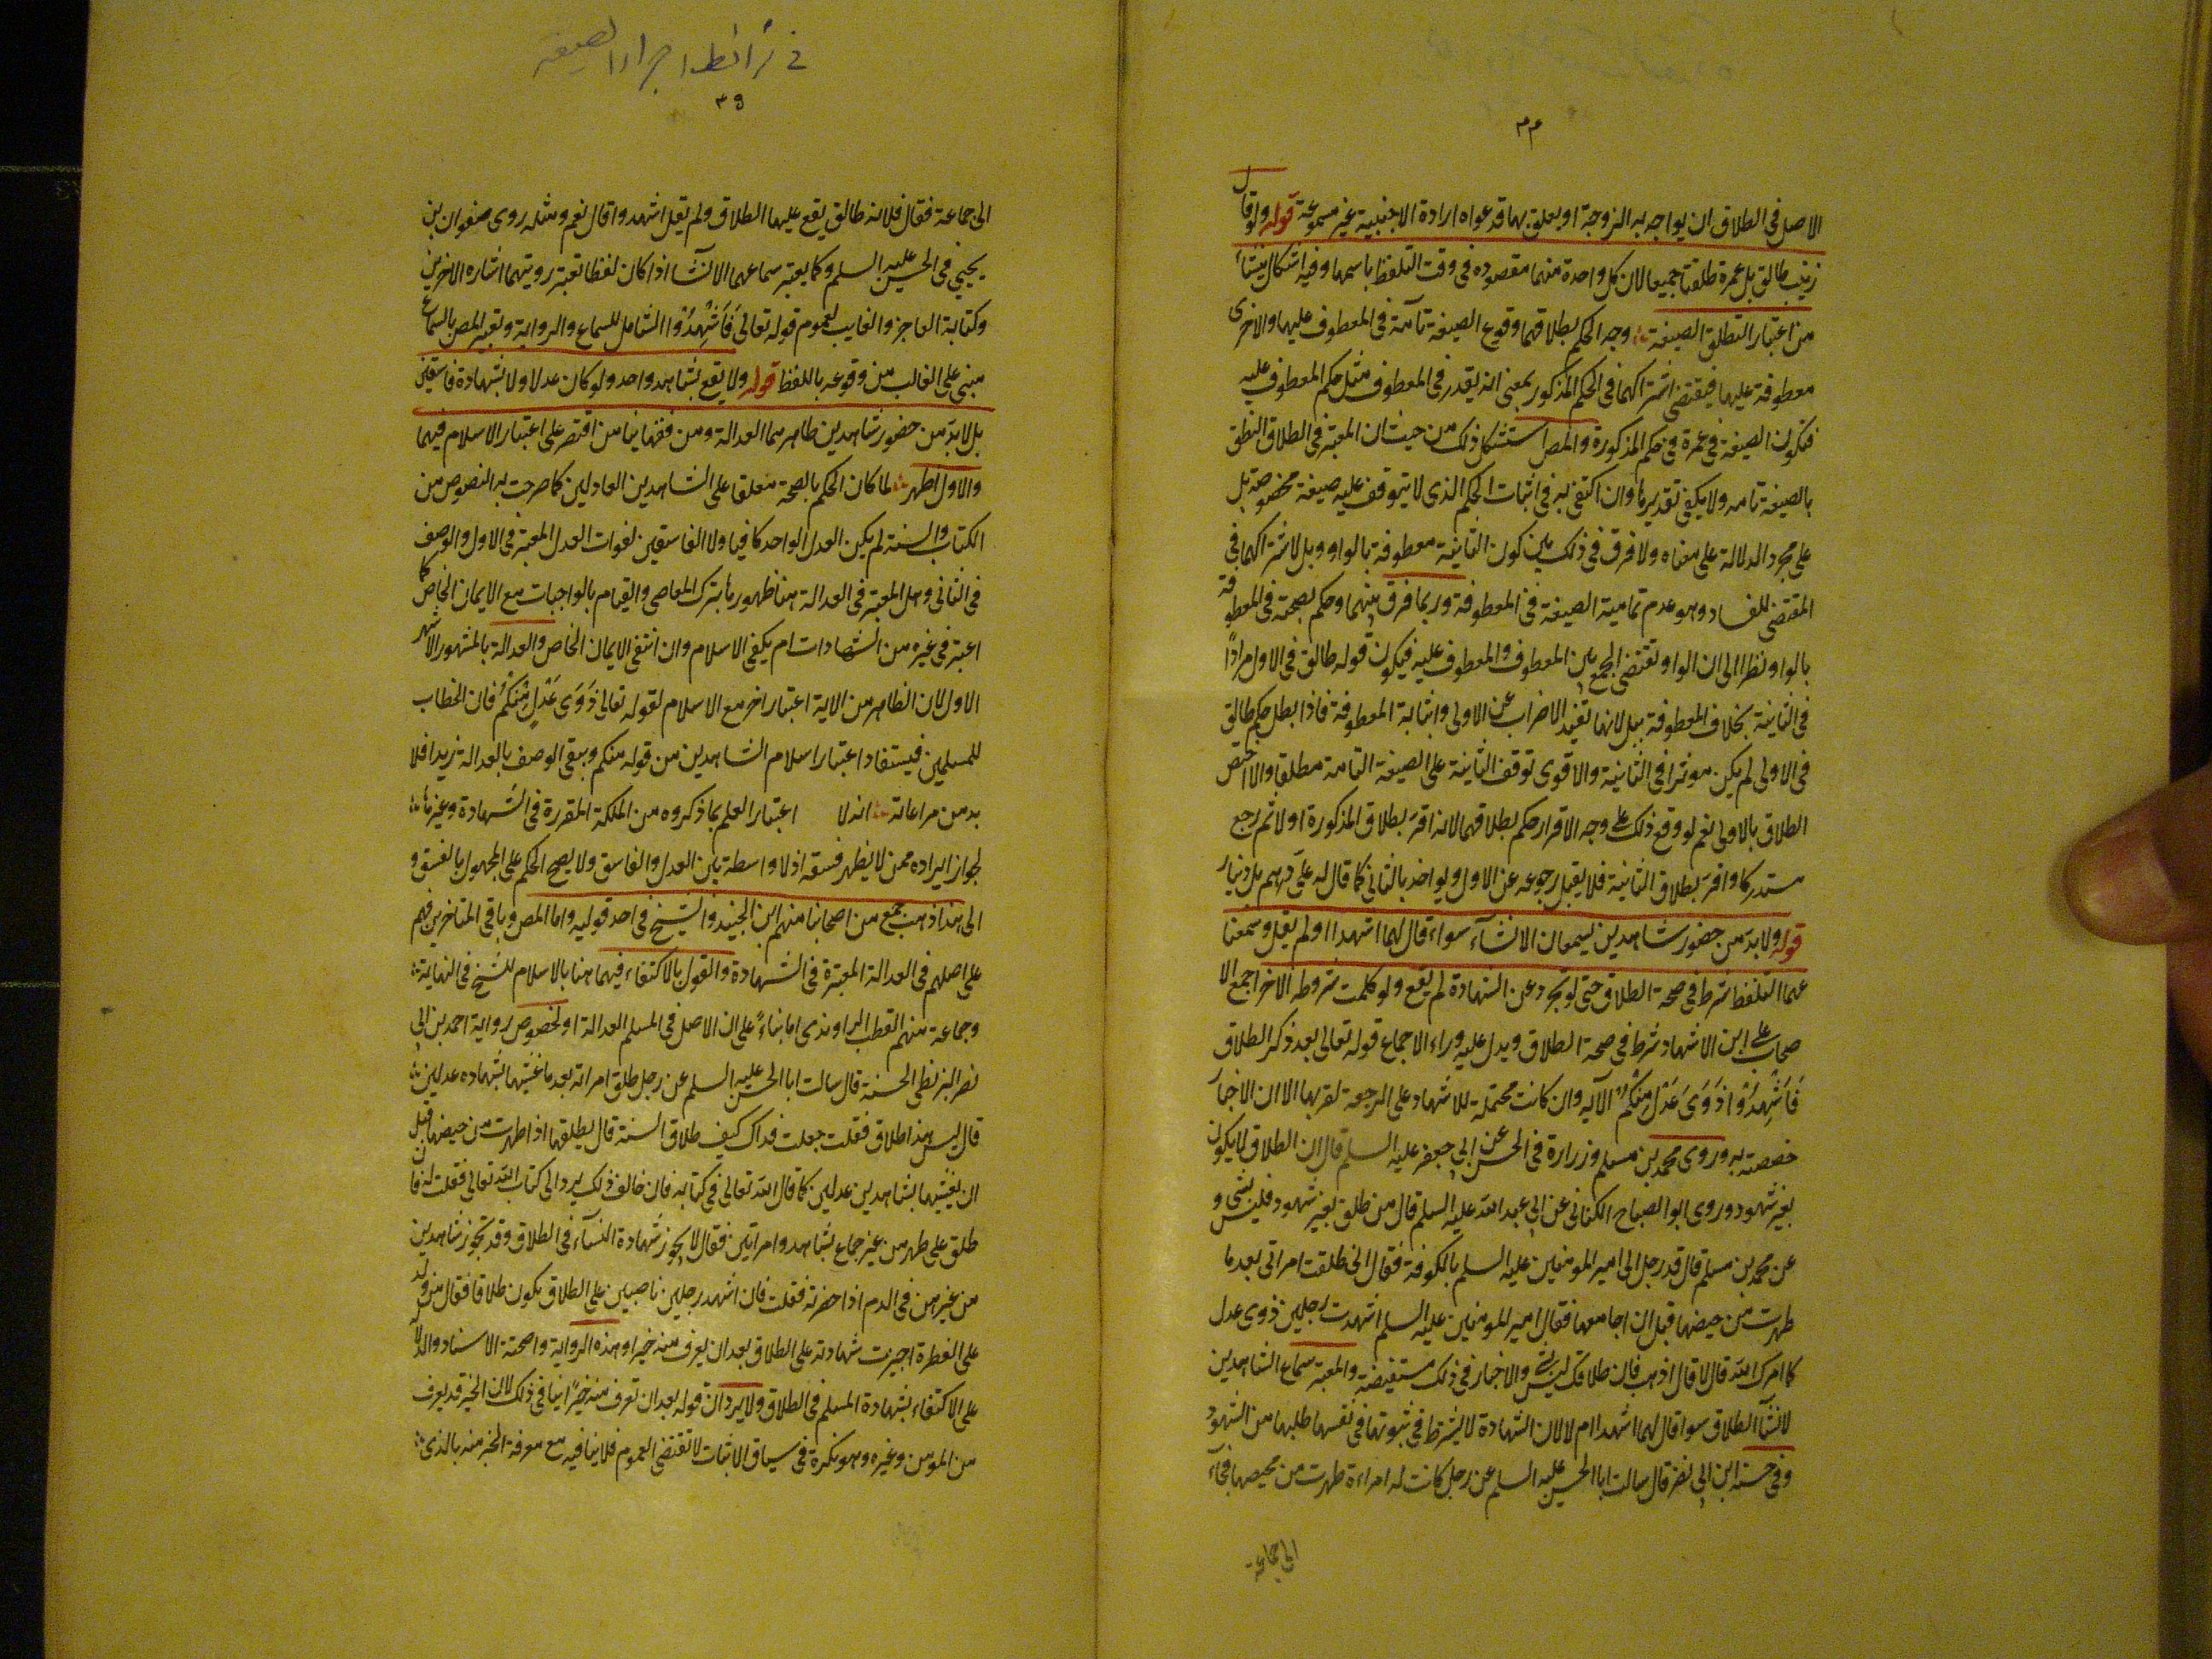 ٣٣
الاصل فى الطلاق ان يواجه به الزوجة او يعلق بها فدعواه ارادة الاجنبية غير مسموعة قوله ولو قال
زينب طالق بل عمرة طلقتا جميعا لان كل واحدة منهما مقصوده فى وقت التلفظ باسمها وفيه اشكال ينشاء
من اعتبار النطق بالصيغة وجه الحكم بطلاقهما وقوع الصيغة تآمة فى المعطوف عليها والاخرى
معطوفة عليها فيقتضى اشتراكهما فى الحكم المذكور بمعنى انه يقدر فى المعطوف مثل حكم المعطوف عليه
فتكون الصيغة فى عمرة فى حكم المذكورة والمص استشكل ذلك من حيث ان المعتبر فى الطلاق النطق
بالصيغة تامه ولا يكفى تقديرها وان اكتفى به فى اثبات الحكم الذى لا يتوقف عليه صيغة مخصوصة بل
على مجرد الدلالة على معناه ولا فرق فى ذلك بين كون الثانية معطوفة بالواو وبل لاشتراكهما فى
المقتضى للفساد وهو عدم تمامية الصيغة فى المعطوفة وربما فرق بينهما وحكم بصحته فى المعطوفة
بالواو نظرا الى ان الواو تقتضى الجمع بين المعطوف والمعطوف عليه فيكون قوله طالق فى الاول مرادًا
فى الثانية بخلاف المعطوفة ببل لانها تفيد الاضراب عن الاولى واثبات المعطوفة فاذا بطل حكم طالق
فى الاولى لم يكن موثرا فى الثانية والاقوى توقف الثانية على الصيغة التامة مطلقا والا اختص
الطلاق بالاولى نعم لو وقع ذلك على وجه الاقرار حكم بطلاقهما لانه اقر بطلاق المذكورة اولا ثم رجع
مستدركا واقر بطلاق الثانية فلا يقبل رجوعه عن الاول ويواخذ بالثانى كما قال له على درهم بل دينار
قوله ولابد من حضور شاهدين يسمعان الانشآء سواء قال لهما اشهدا او لم يقل وسمعنا
عهما التلفظ شرط فى صحة الطلاق حتى لو تجرد عن الشهادة لم يقع ولو كملت شروطه الاخر اجمع الا
صحاب على ان الاشهاد شرط فى صحة الطلاق ويدل عليه وراء الاجماع قوله تعالى بعد ذكر الطلاق
فَاَشْهِدُوْا ذَوَىْ عَدْلٍ مِنْكُمْ الآيه وان كانت محتملة للاشهاد على الرجعة لقربها الا ان الاخبار
خصصته به وروى محمد بن مسلم وزرارة فى الحسن عن ابى جعفر عليه السلم قال ان الطلاق لا يكون
بغير شهود وروى ابو الصباح الكنانى عن ابى عبد الله عليه السلم قال من طلق بغير شهود فليس بشى و
عن محمد بن مسلم قال قدم رجل الى امير المومنين عليه السلم بالكوفة فقال انى طلقت امراتى بعد ما
طهرت من حيضها قبل ان اجامعها فقال امير المومنين عليه السلم اشهدت رجلين ذوى عدل
كما امرك الله قال لا قال اذهب فان طلاقك ليس بشى والاخبار فى ذلك مستفيضة والمعتبر سماع الشاهدين
لانشآ الطلاق سوا قال لهما اشهدا ام لا لان الشهادة لا يشترط فى ثبوتها فى نفسها طلبها من الشهود
وفى حسنة ابن ابى نصر قال سالت ابا الحسن عليه السلم عن رجل كانت له امراءة طهرت من محيضها فجآء
الى جماعة
فى شرائط اجراء الصيغة
٣٩
الى جماعة فقال فلانه طالق يقع عليها الطلاق ولم يقل اشهدوا قال نعم ومثله روى صفوان بن
يحيى فى الحسن عليه السلم وكما يعتبر سماعهما الانشآ اذا كان لفظا تعتبر رويتهما اشاره الاخرين
وكتابة العاجز والغايب لعموم قوله تعالى فَاَشْهِدُوْا الشامل للسماع والرواية وتعبير المص بالسماع
مبنى على الغالب من وقوعه باللفظ قوله ولا يقع بشاهد واحد ولو كان عدلا ولا بشهادة فاسقين
بل لابد من حضور شاهدين ظاهرهما العدالة ومن فقهاينا من اقتصر على اعتبار الاسلام فيهما
والاول اظهر لما كان الحكم بالصحة متعلقا على الشاهدين العادلين كما صرحت به النصوص من
الكتاب والسنة لم يكن العدل الواحد كافيا ولا الفاسقين لفوات العدل المعتبر فى الاول والوصف
فى الثانى وهل المعتبر فى العدالة هنا ظهورها بترك المعاصى والقيام بالواجبات مع الايمان الخاص كما
اعتبر فى غيره من الشهادات ام يكفى الاسلام وان انتفى الايمان الخاص والعدالة بالمشهور الاشهر
الاول لان الظاهر من الاية اعتبار اخر مع الاسلام لقوله تعالى ذَوَىْ عَدْلٍ مِنْكُمْ فان الخطاب
للمسلمين فيستفاد اعتبار اسلام الشاهدين من قوله منكم ويبقى الوصف بالعدالة زيدا فلا
بد من مراعاته اذ لا اعتبار العلم بما ذكروه من الملكة المقررة فى الشهادة وغيرها
لجواز ايراده ممن لا يظهر فسقه اذ لا واسطة بين العدل والفاسق ولا يصح الحكم على المجهول بالفسق و
الى هذا ذهب جمع من اصحابنا منهم ابن الجنيد والشيخ فى احد قوليه واما المص وباقى المتاخرين فهم
على اصلهم فى العدالة المعتبرة فى الشهادة والقول بالاكتفاء فيهما هنا بالاسلام للشيخ فى النهاية
وجماعة منهم القطب الراوندى اما بناءً على ان الاصل فى المسلم العدالة او لخصوص رواية احمد بن ابى
نصر البزنطى الحسنة قال سالت ابا الحسن عليه السلم عن رجل طلق امراته بعد ما غشيها بشهاده عدلين
قال ليس هذا طلاق فقلت جعلت فداك كيف طلاق السنة قال يطلقها اذا طهرت من حيضها قبل
ان يغشيها بشاهدين عدلين كما قال الله تعالى فى كتابه فان خالف ذلك يرد الى كتاب الله تعالى فقلت له فان
طلق على طهر من غير جماع بشاهد وامراتين فقال لا يجوز شهادة النسآء فى الطلاق وقد تجوز شاهدين
من غيرهن فى الدم اذا حضرته فقلت فان اشهد رجلين ناصبيين على الطلاق يكون طلاقا فقال من ولد
على الفطرة اجيزت شهادته على الطلاق بعد ان يعرف منه خيرا وهذه الرواية واضحة الاسناد والدلالة
على الاكتفاء بشهادة المسلم فى الطلاق ولا يرد ان قوله بعد ان تعرف منه خيرًا ينافى ذلك لان الخير قد يعرف
من المومن وغيره وهو نكرة فى سياق الاثبات لا تقتضى العموم فلا ينافيه مع معرفة الخير منه بالذى